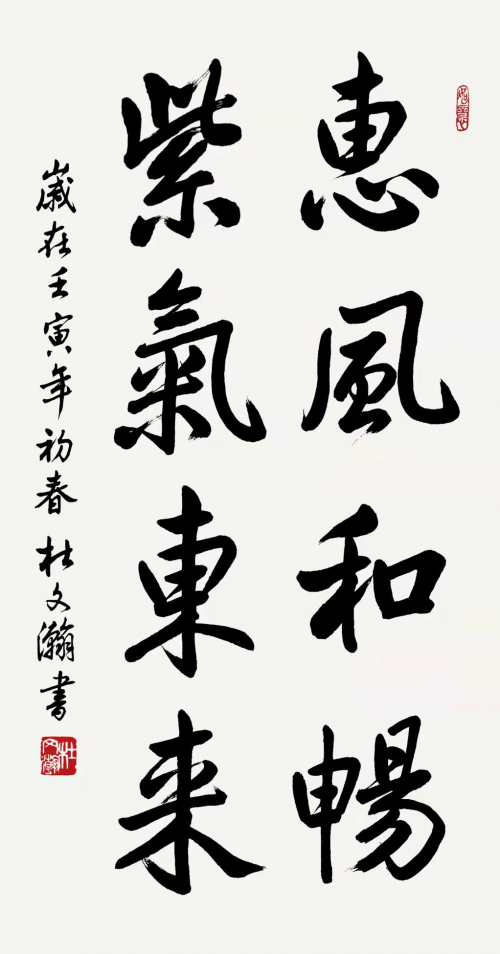 惠風和暢
紫氣東来
歲在壬寅年初春杜文瀚書
杜文瀚